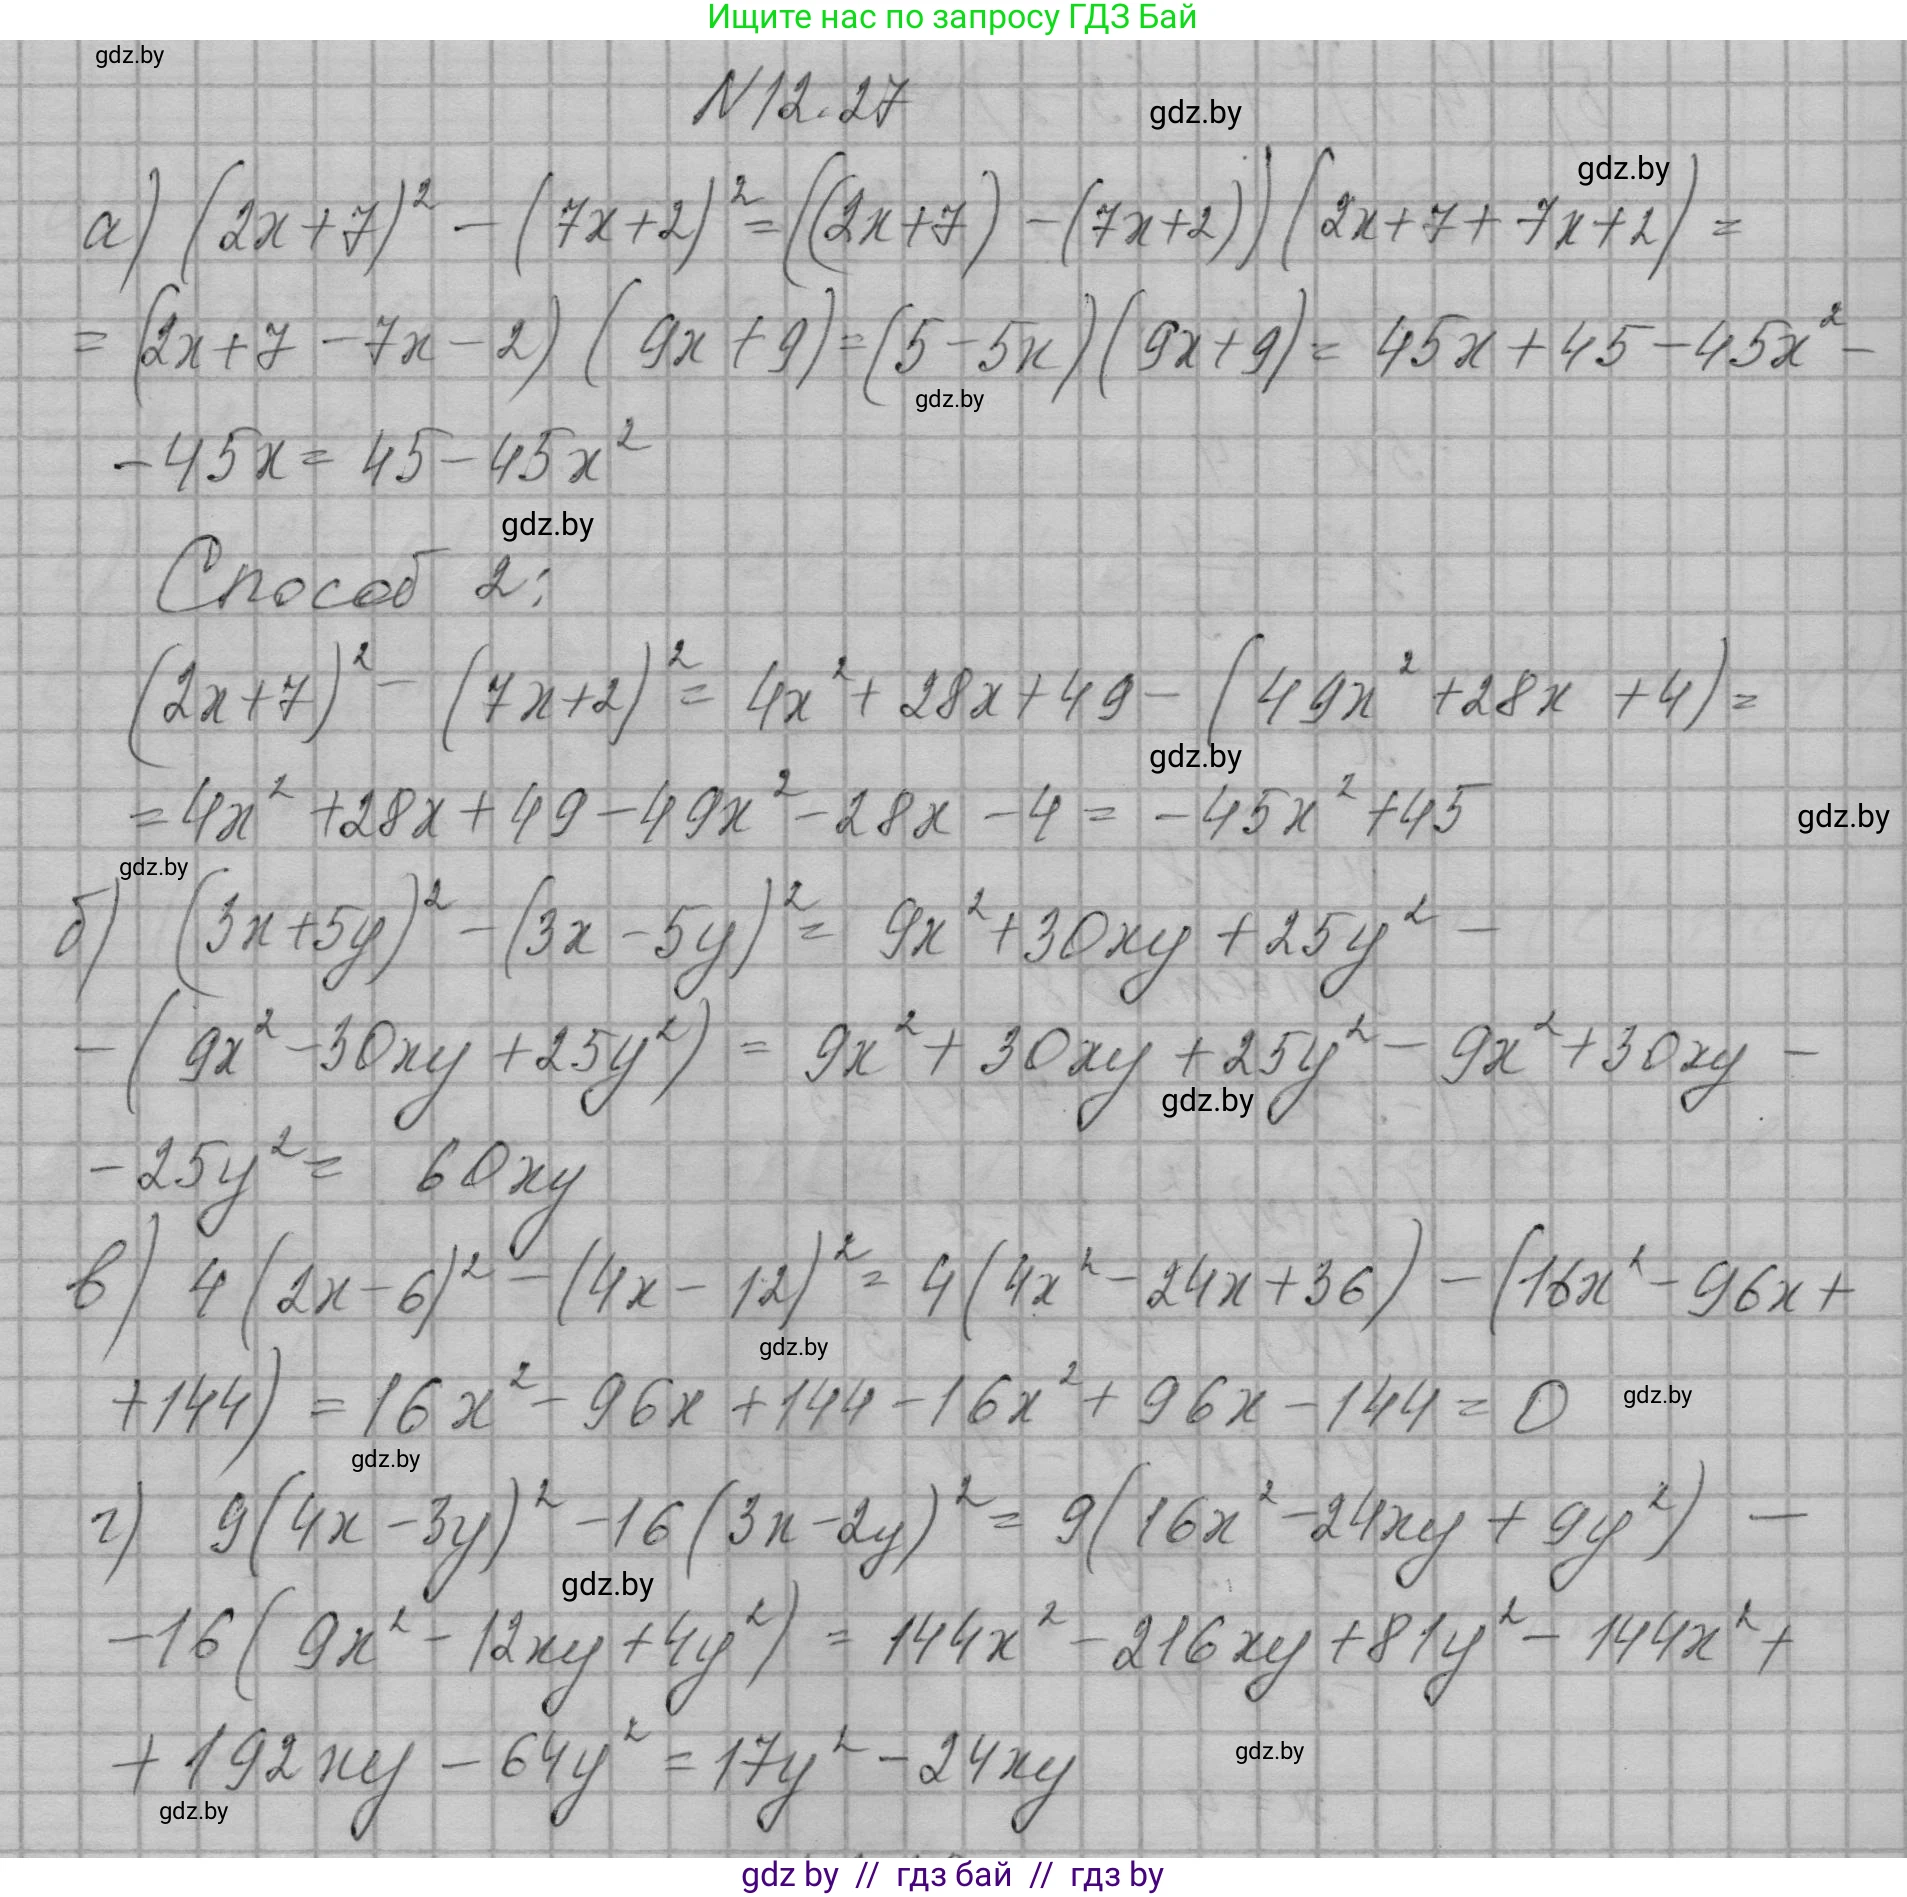 Ищите нас по запросу ГДЗ Бай
gdz.by
N12.27
gdz.by
gdz.by
а) (2x+7)² - (7x+2)² = ((2x+7) - (7x+2)) (2x+7+7x+2) =
= (2x+7-7x-2) (9x+9) = (5-5x)(9x+9) = 45x+45-45x² -
gdz.by
-45x = 45-45x²
gdz.by
Способ 2:
(2x+7)² - (7x+2)² = 4x²+28x+49-(49x²+28x+4) =
gdz.by
= 4x²+28x+49-49x²-28x-4 = -45x²+45
gdz.by
gdz.by
б) (3x+5y)² - (3x-5y)² = 9x²+30xy+25y² -
- (9x²-30xy+25y²) = 9x²+30xy+25y²-9x²+30xy -
gdz.by
-25y² = 60xy
в) 4(2x-6)² - (4x-12)² = 4(4x²-24x+36) - (16x²-96x+
gdz.by
+144) = 16x²-96x+144-16x²+96x-144 = 0
gdz.by
gdz.by
г) 9(4x-3y)² - 16(3x-2y)² = 9(16x²-24xy+9y²) -
gdz.by
-16(9x²-12xy+4y²) = 144x²-216xy+81y²-144x²+
+192xy-64y² = 17y²-24xy
gdz.by
gdz.by
gdz by // гдз бай // гдз by